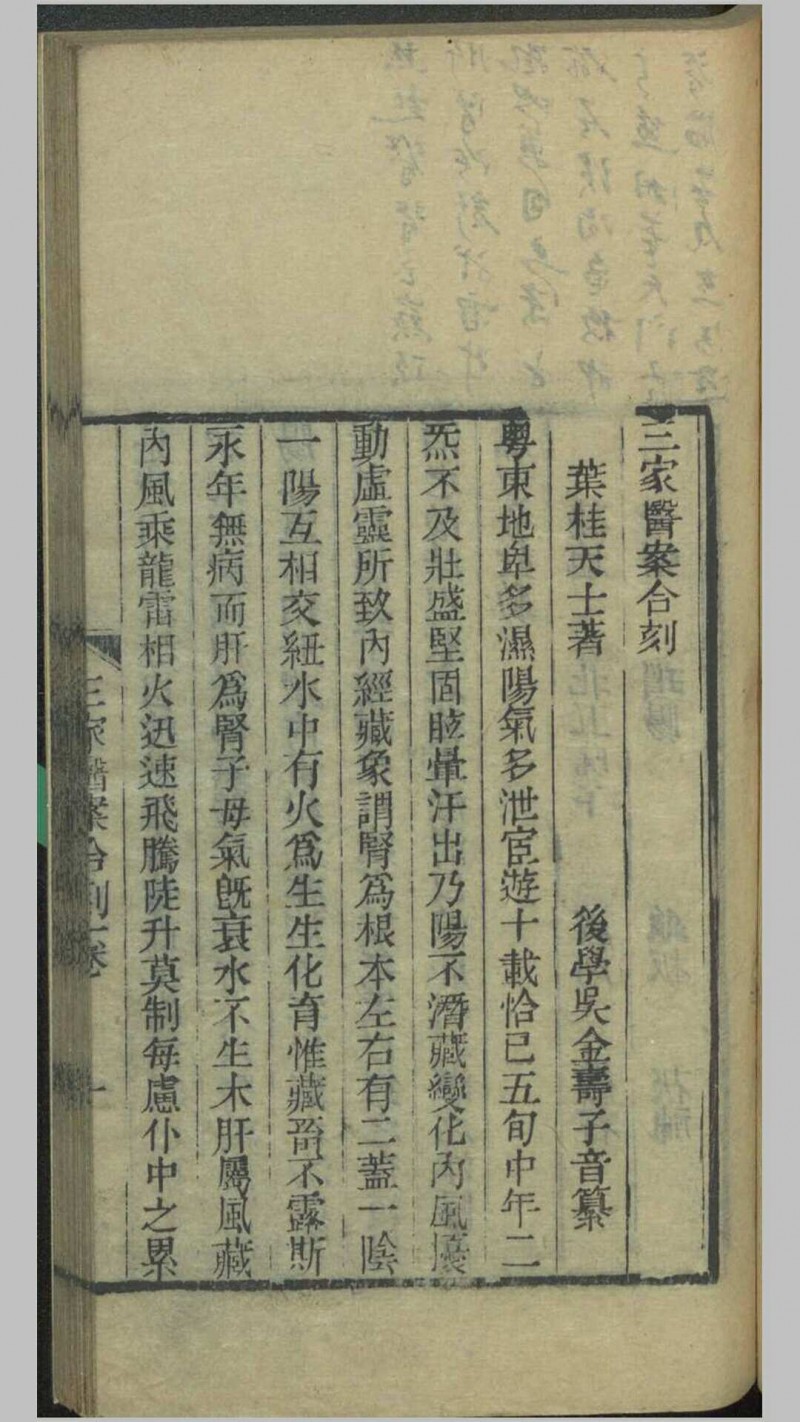 三家醫案合刻
葉桂天士著　後學吳金壽子音纂
粵東地卑多濕陽氣多泄宦遊十載恰已五旬中年二
炁不及壯盛堅固眩暈汗出乃陽不潛藏變化內風擾
動虛靈所致內經藏象謂腎爲根本左右有二蓋一陰
一陽互相交紐水中有火爲生生化育惟藏蓄不露斯
永年無病而肝爲腎子母氣旣衰水不生木肝屬風藏
內風乘龍雷相火迅速飛騰陡升莫制每慮仆中之累
三家醫案合刻 卷 一